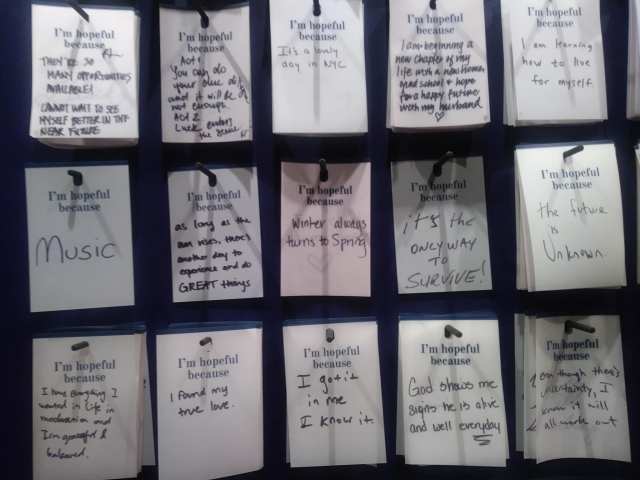 I'm hopeful
because
THEY'RE SO
MANY OPPORTUNITIES
AVAILABLE!
CANNOT WAIT TO SEE
MYSELF BETTER IN THE
NEAR FUTURE
I'm hopeful
because
Act 1
You can do
your
and it will be
not enough
Act 2
Luck
the
I'm hopeful
because
It's a lovely
day in NYC
I'm hopeful
because
I am beginning a
new chapter of my
life with a new home,
grad school & hope
for a happy future
with my husband
♡
I'm hopeful
because
I am learning
how to live
for myself.
I'm hopeful
because
MUSIC
I'm hopeful
because
as long as the
sun rises, there's
another day to
experience and do
GREAT things
I'm hopeful
because
Winter always
turns to Spring
♡
I'm hopeful
because
it's the
ONLY WAY
TO
SURVIVE!
I'm hopeful
because
the future
is
Unknown.
I'm hopeful
because
I have everything I
wanted in life in
moderation and
I'm grateful &
balanced.
I'm hopeful
because
I found my
true love.
I'm hopeful
because
I got it
in me
I know it.
I'm hopeful
because
God shows me
signs he is alive
and well everyday
I'm hopeful
because
even though there's
uncertainty, I
know it will
all work out